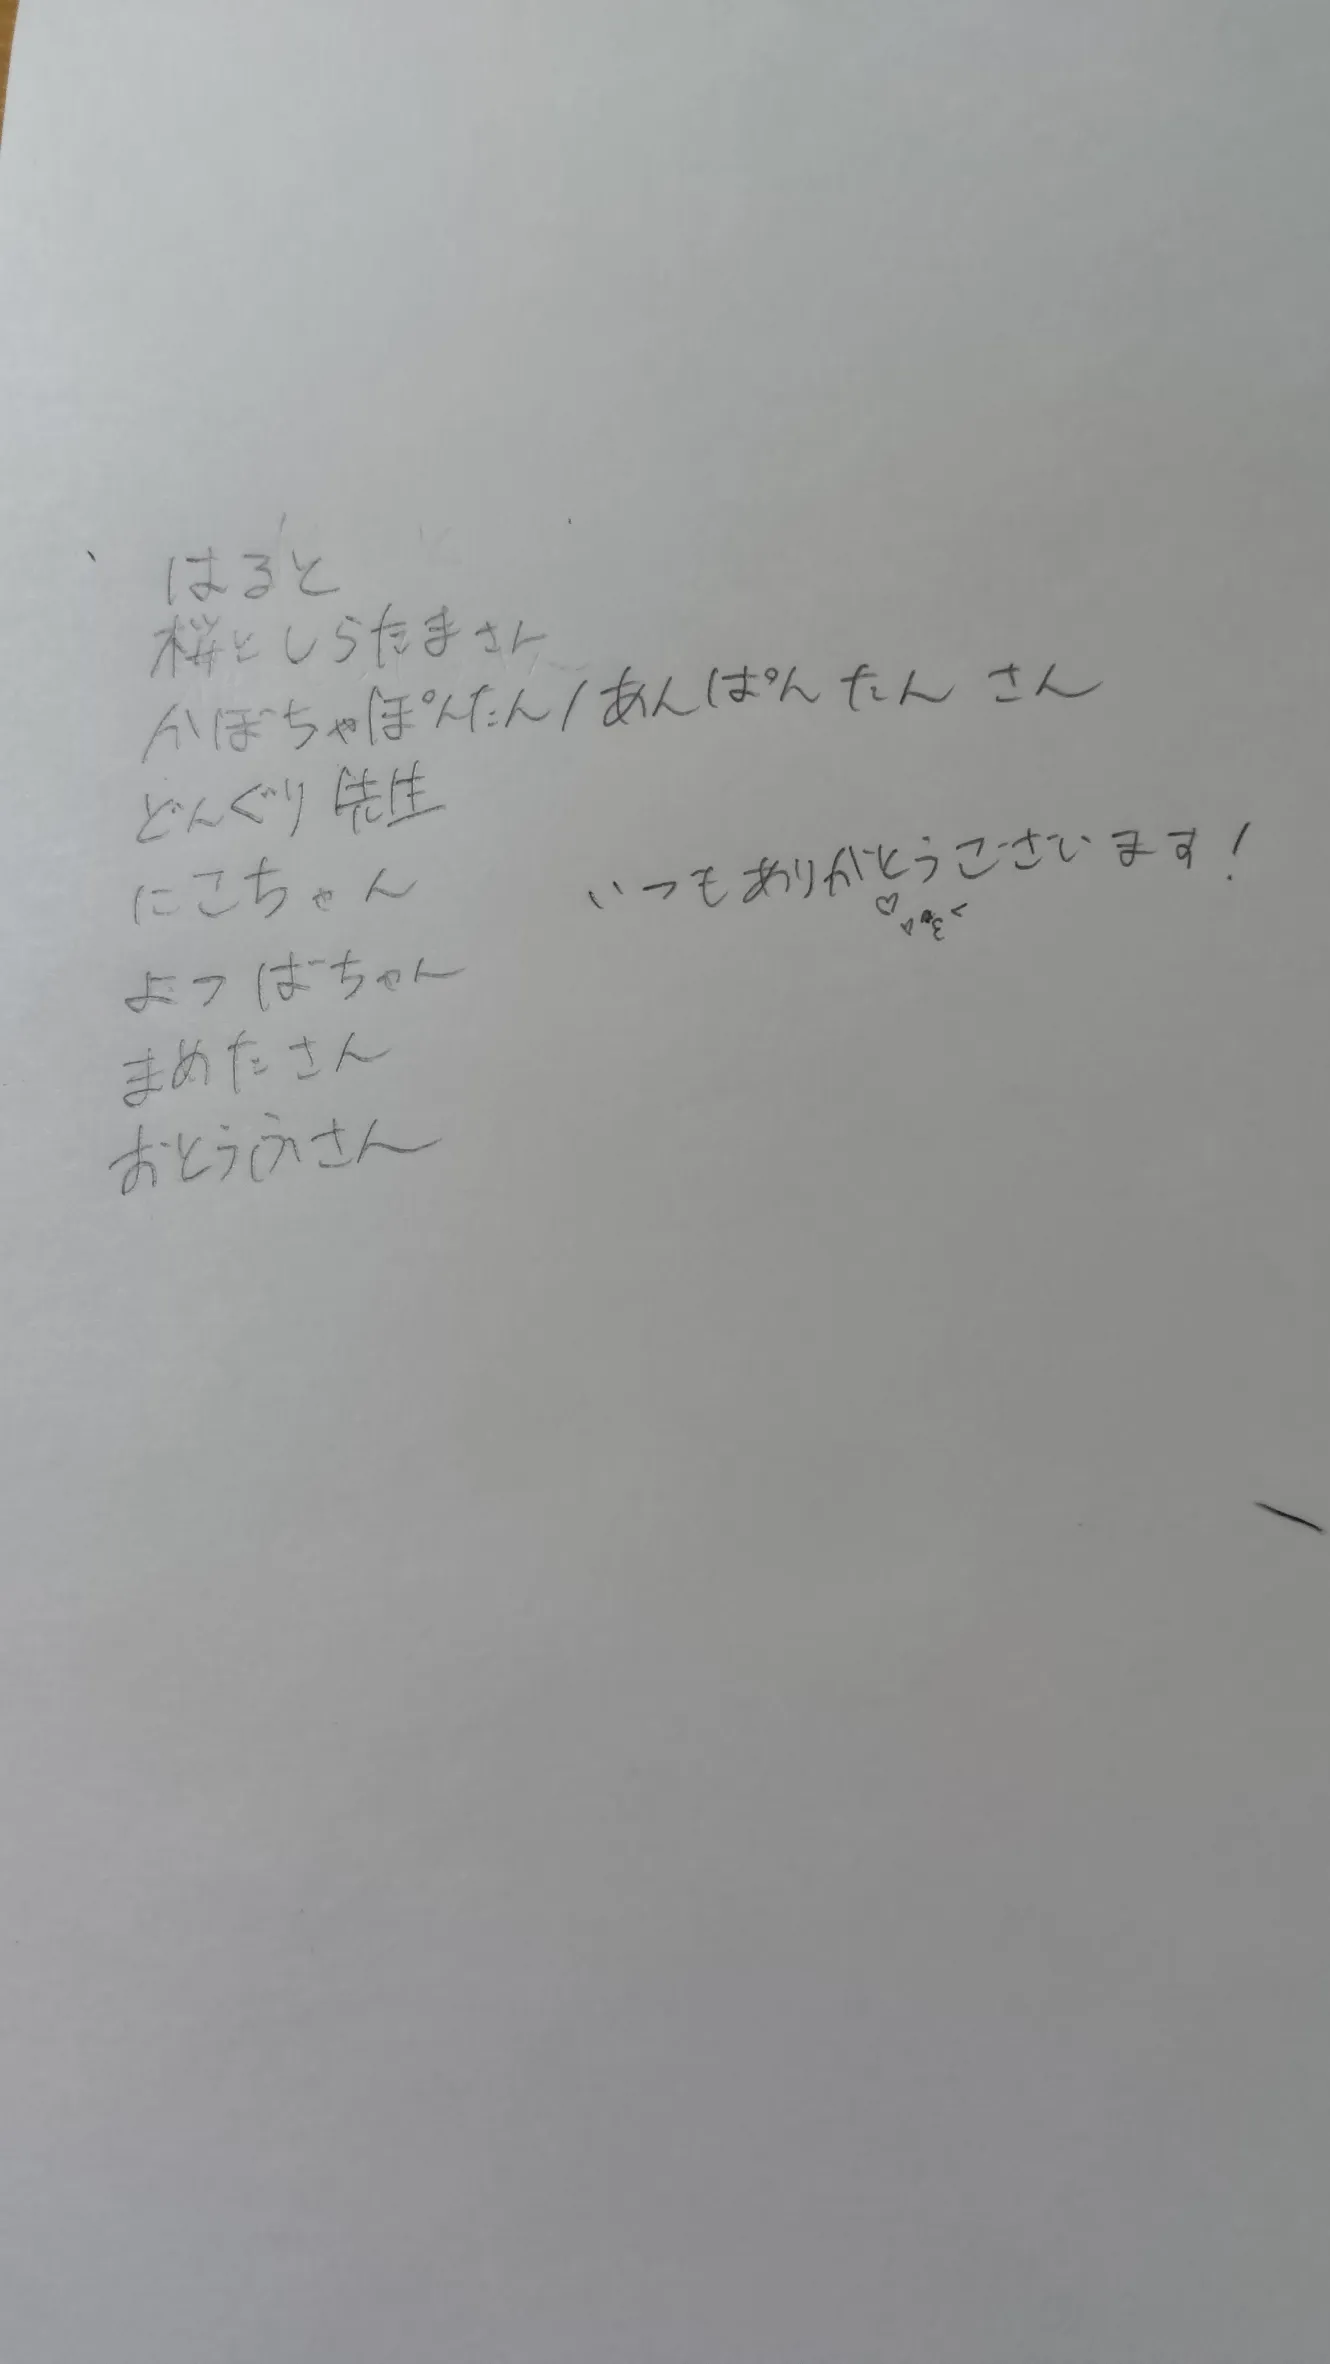 はると
桜としらたまさん
かぼちゃぽんたん/あんぱんたん さん
どんぐり先生
にこちゃん
いつもありがとうございます!
よつばちゃん
まめたさん
おとうふさん